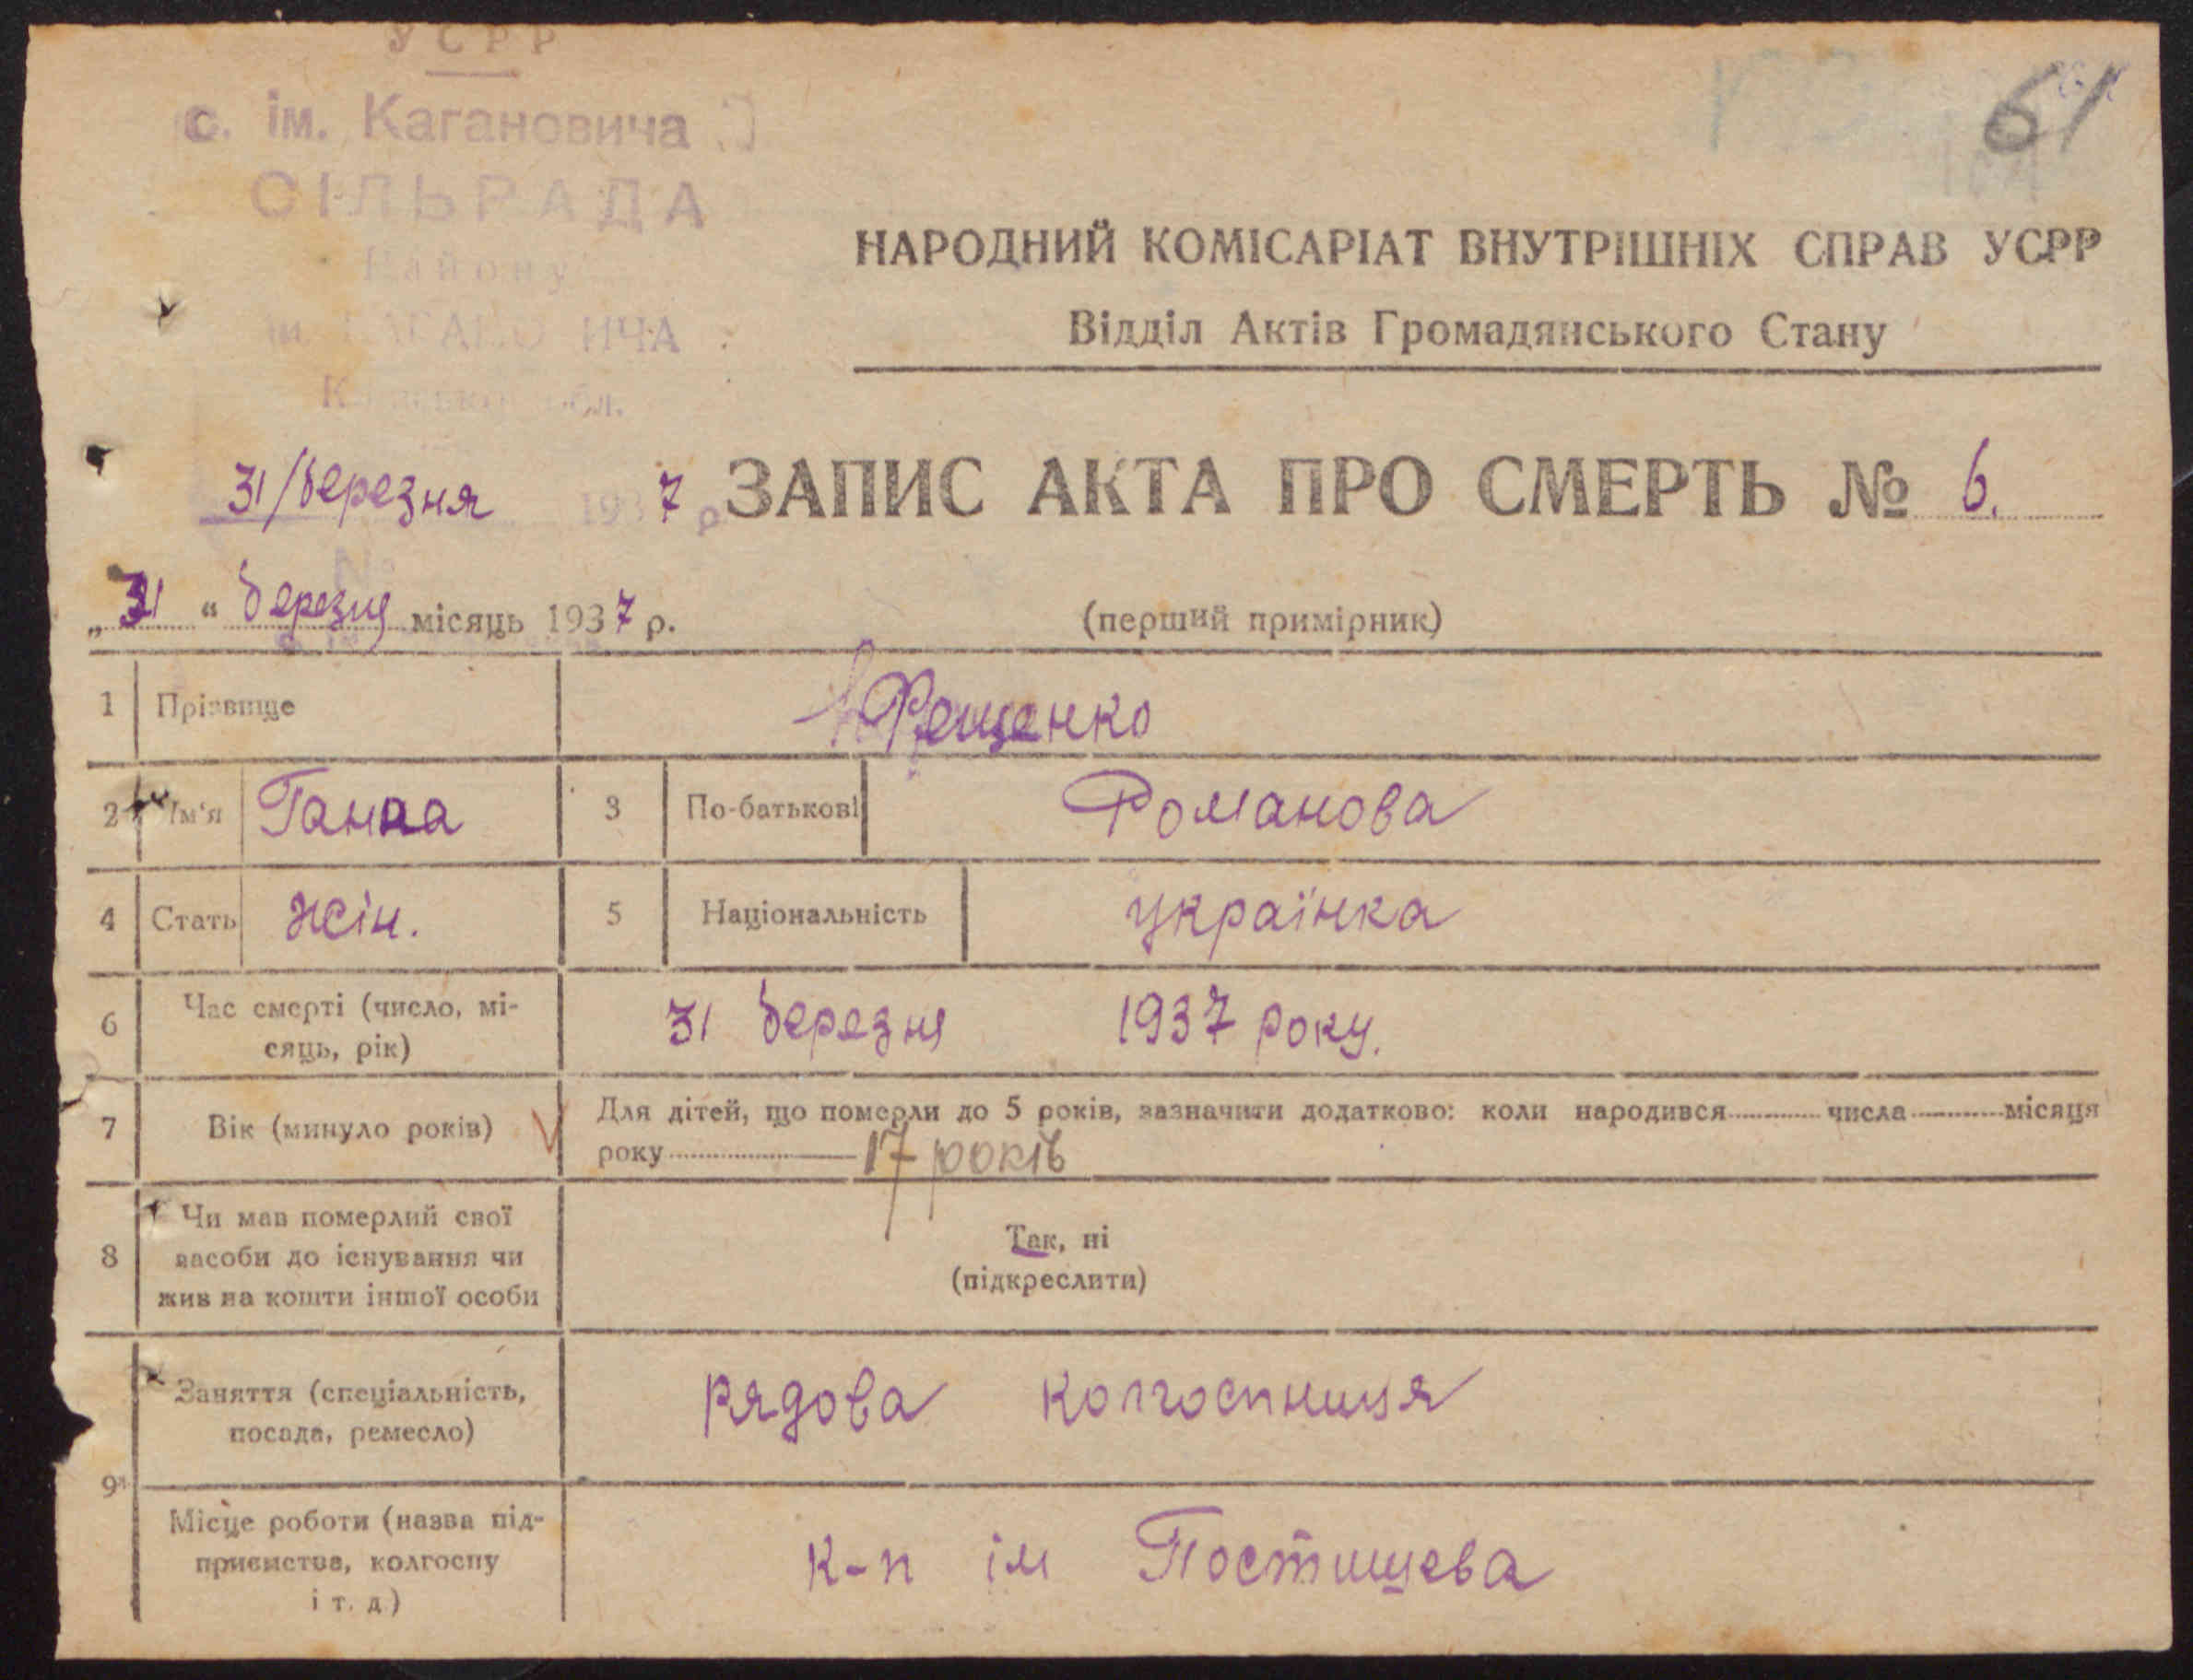 УСРР
с. ім. Кагановича
СІЛЬРАДА
Району
ім. КАГАНОВИЧА
обл.
61
НАРОДНИЙ КОМІСАРІАТ ВНУТРІШНІХ СПРАВ УСРР
Відділ Актів Громадянського Стану
31/березня 1937 р
ЗАПИС АКТА ПРО СМЕРТЬ № 6.
„31“ березня місяць 1937 р.
(перший примірник)
1 Прізвище Фещенко
2 Ім'я Ганна 3 По-батькові Романова
4 Стать жін. 5 Національність українка
6 Час смерті (число, мі-
сяць, рік) 31 березня 1937 року.
7 Вік (минуло років) Для дітей, що померли до 5 років, зазначити додатково: коли народився числа місяця
року 17 років
8 Чи мав померлий свої
засоби до існування чи
жив на кошти іншої особи
Так, ні
(підкреслити)
9 Заняття (спеціальність,
посада, ремесло) рядова колгоспниця
Місце роботи (назва під-
приємства, колгоспу
і т. д.) к-п ім Постишева